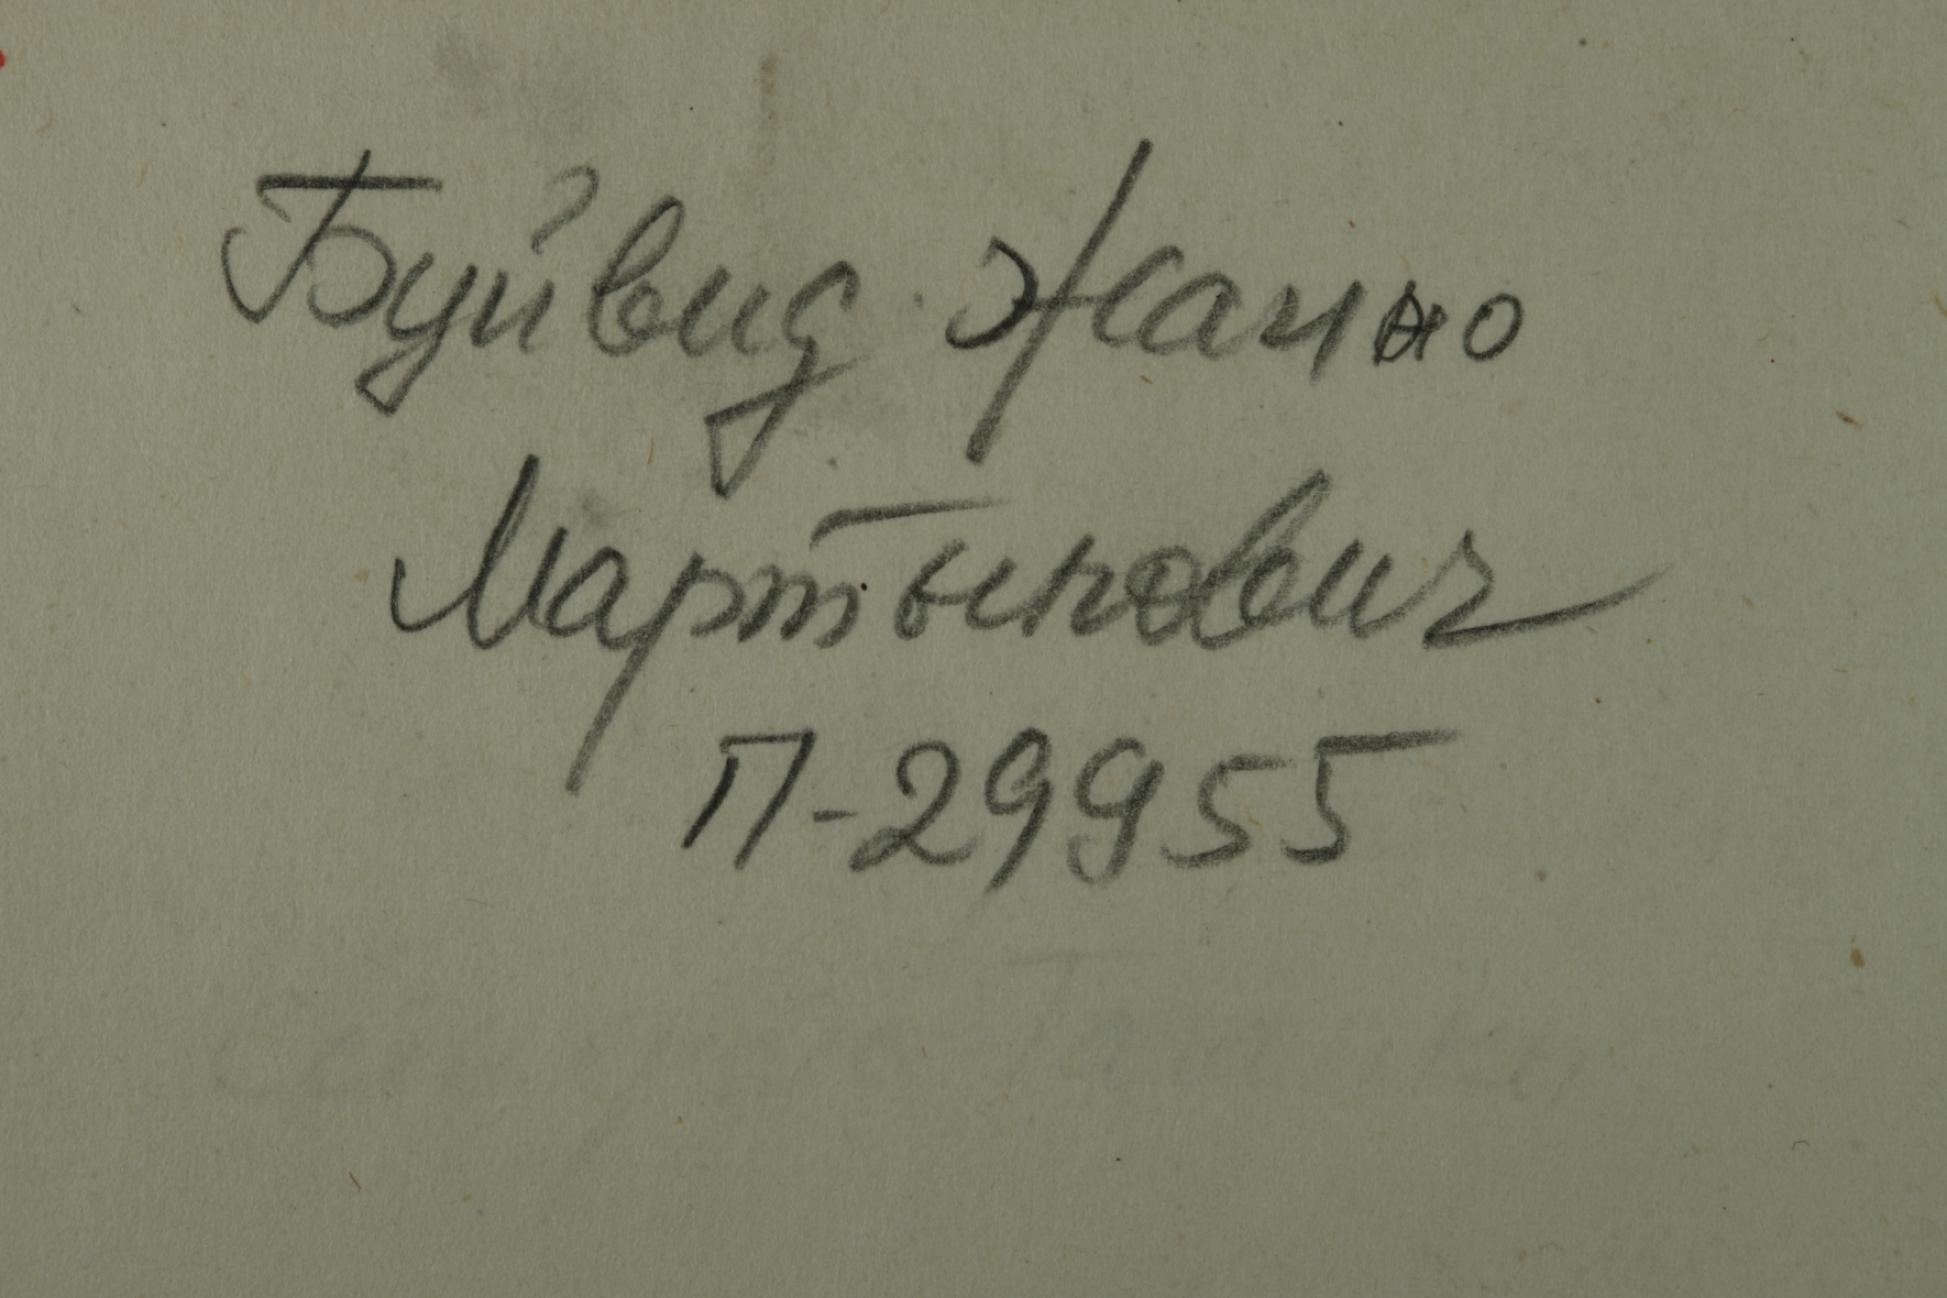 Буйвид Жанно
Мартынович
П-29955